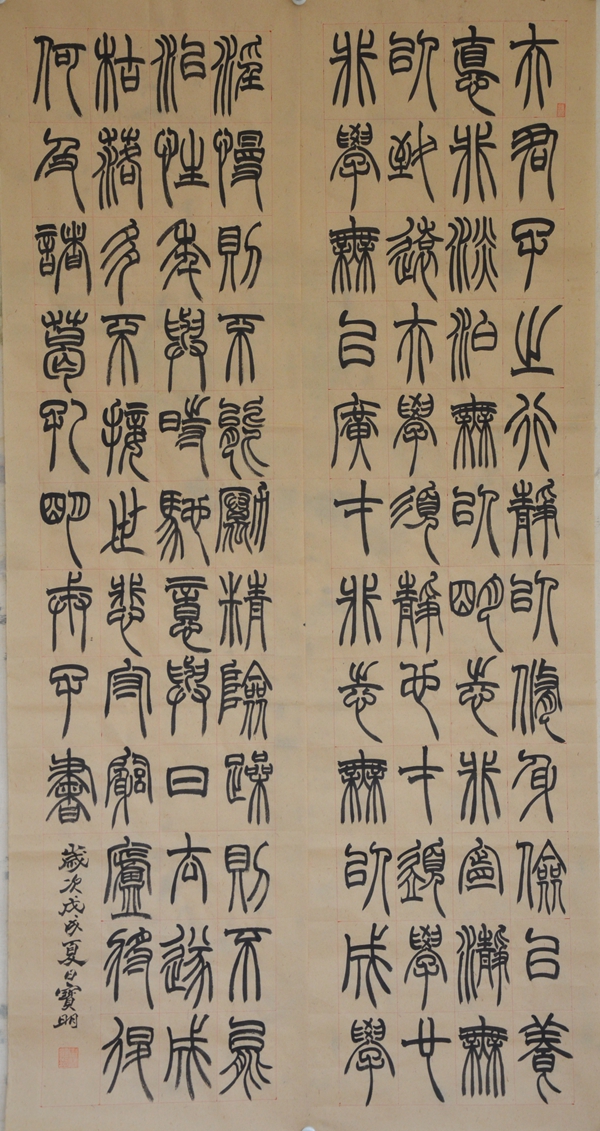 夫君子之行靜以修身儉以養
惪非淡泊無以明志非寧瀞無
以致遠夫學須靜也才須學也
非學無以廣才非志無以成學
淫慢則不能勵精險躁則不能
治性年與時馳意與日去遂成
枯落多不接世悲守窮廬將復
何及諸葛孔明戒子書
歲次戊戌夏日寶明